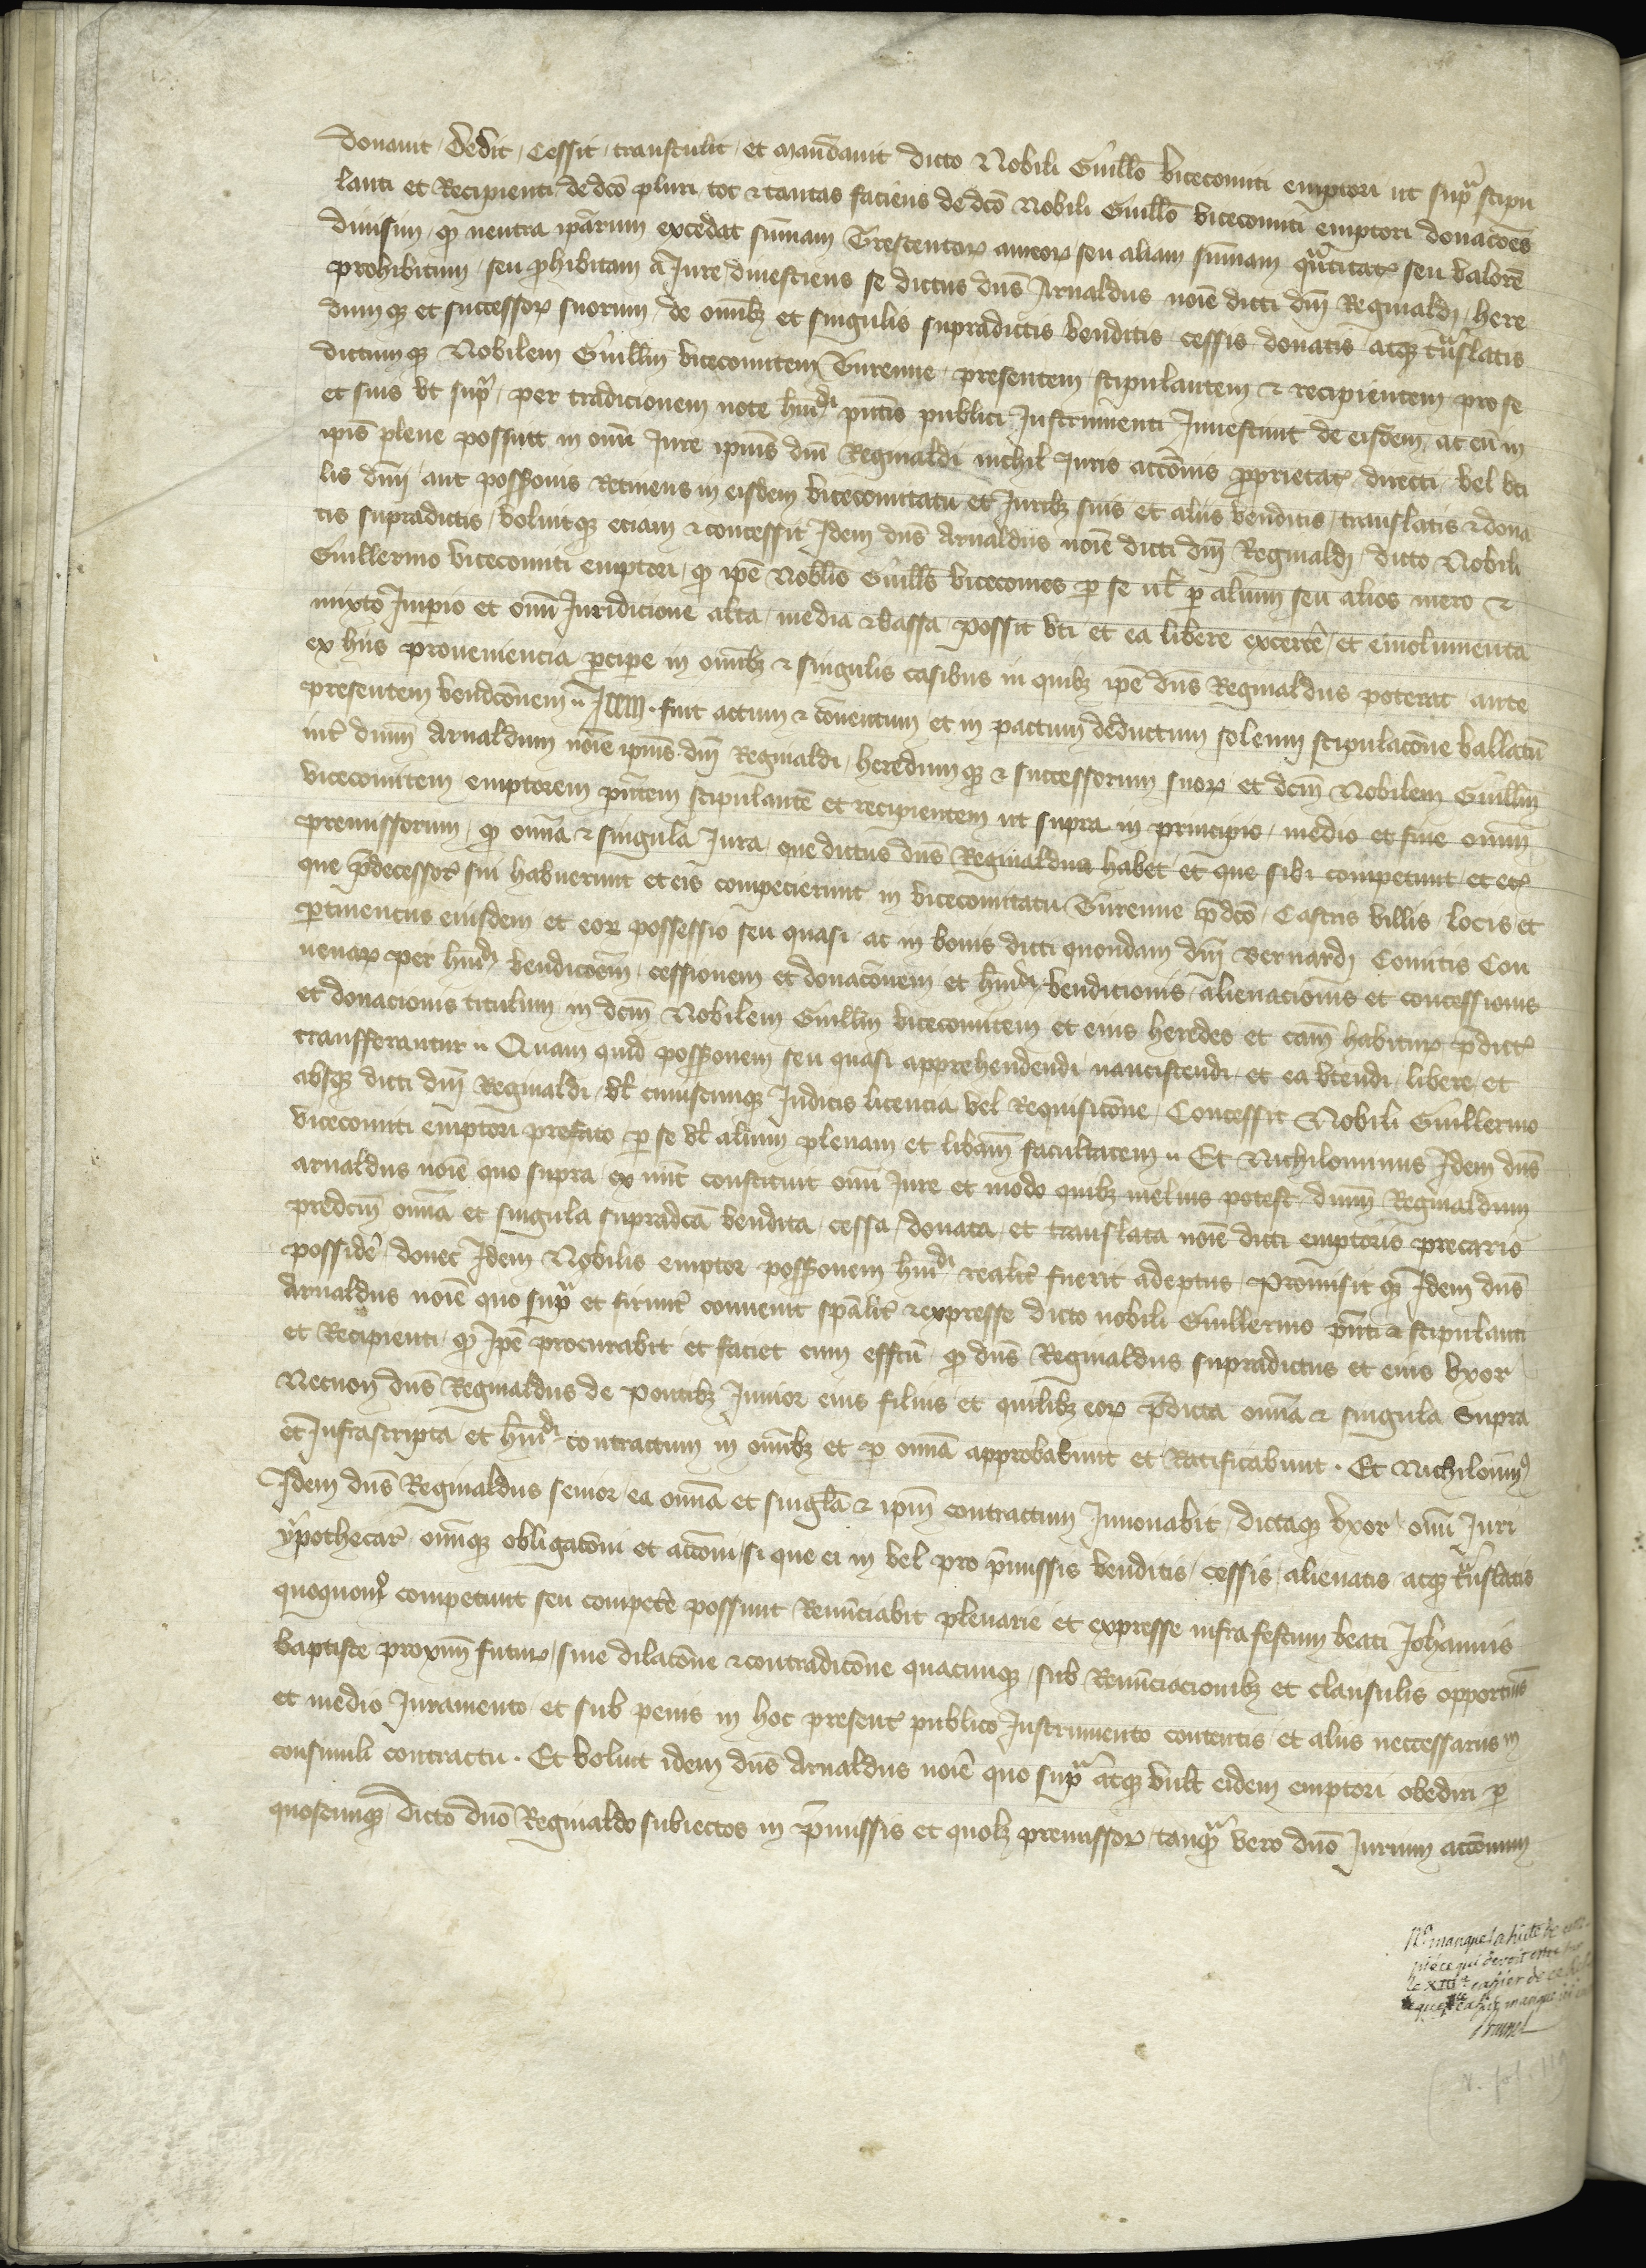 donauit dedit Cessit transtulit et mandauit dicto Nobili Guillo vicecomiti emptori ut supra stipu
lanti et Recipienti de dco pluri tot & tantas faciens de dco Nobili Guillo vicecomiti emptori donacoes
diuisim, q neutra iparum excedat sumam Trescentor aureor seu aliam sumam qutitat seu valore
prohibitum, seu prohibitam a Jure, diuestiens se dictus dns Arnaldus noie dicti dni Reginaldi, here
dumq et successor suorum, de omibz et singulis supradictis venditis cessis donatis atq translatis
dictumq Nobilem Guillm vicecomitem Turenne presentem stipulantem & recipientem pro se
et suis vt supra, per tradicionem note humodi pntis publici Instrumenti Inuestiuit de eisdem, ac eu in
ipis plene possuit in omi Jure ipius dni Reginaldi nichil Juris accionis proprietat directi vel vti
lis dnii aut possonis Retinens in eisdem vicecomitatu et Juribz suis et aliis venditis translatis & dona
tis supradictis, voluitq eciam & concessit Idem dns Arnaldus noie dicti dni Reginaldi, dicto Nobili
Guillermo vicecomiti emptori, q ipe Nobilis Guills vicecomes p se ul p alium seu alios mero &
mixto Imperio et omi Juridicione alta, media & bassa possit vti et ea libere excerce, et emolumenta
ex hiis proueniencia pcipe in omibz & singulis casibus in quibz ipe dns Reginaldus poterat ante
presentem vendcoem, Item fuit actum & conuentum et in pactum deductum solemi stipulacone vallatu
int dnum Arnaldum noie ipius dni Reginaldi, heredumq & successorum suor et dcm Nobilem Guillm
vicecomitem emptorem pntem stipulante et recipientem ut supra in principio, medio et fine omium
premissorum, q omia & singula Jura, que dictus dns Reginaldus habet et que sibi competunt et et
que predecessor sui habuerunt et eis competierunt in vicecomitatu Turenne pdco, Castris villis locis et
ptinenciis eiusdem et eor possessio seu quasi ac in bonis dicti quondam dni Bernardi Comitis Con
uenar per humodi vendicoem, cessionem et donacionem et humodi vendicionis, alienacionis et concessionis
et donacionis titulum in dcm Nobilem Guillm vicecomitem et eius heredes et cam habitur pdict
transferantur Quam quid possonem seu quasi apprehendendi nanciscendi et ea vtendi libere et
absq dicti dni Reginaldi, vl cuiuscunq Judicis licencia vel Requisicone, Concessit Nobili Guillermo
vicecomiti emptori prefato p se vl alium plenam et libam facultatem Et Nichilominus Idem dns
Arnaldus noie quo supra ex nuc constituit omi Jure et modo quibz melius potest dnum Reginaldum
predcm omia et singula supradca vendita, cessa, donata, et translata noie dicti emptoris precario
posside, donec Idem Nobilis emptor possonem humodi realit fuerit adeptus, Promisit q Idem dns
Arnaldus noie quo supra et firmit conuenit spalit & expresse dicto nobili Guillermo pnti & stipulanti
et Recipienti, q Ipe procurabit et faciet cum effcu, q dns Reginaldus supradictus et eius vxor
Necnon dns Reginaldus de Pontibz Junior eius filius et quilibz eor pdicta omia & singula supra
et Infrascripta et humodi contractum in omibz et p omia approbabunt et Ratificabunt. Et Nichilomin9
Idem dns Reginaldus senior ea omia et singla & ipm contractum Innouabit, dictaq vxor omi Juri
ypothecar omiq obligacioni et accioni si que ei in vel pro pmissis venditis, cessis alienatis atq translatis
quoquomo competunt seu compete possunt Renunciabit plenarie et expresse infra festum beati Johannis
baptiste proxim futur, sine dilacone & contradicone quacunq, sub Renunciacionibz et clausulis opportunis
et medio Juramento, et sub penis in hoc present publico Instrumento contentis, et aliis neccessariis in
consimili contractu. Et voluit idem dns Arnaldus noie quo supra atq vult eidem emptori obediri p
quoscunq Dicto dno Reginaldo subiectos in pmissis et quolz premissor, tanq vero dno Jurium accionum
No manque la suite de cette
piéce qui devoit estre sur
le XIIIe cahier de ce
lequel cahier manque